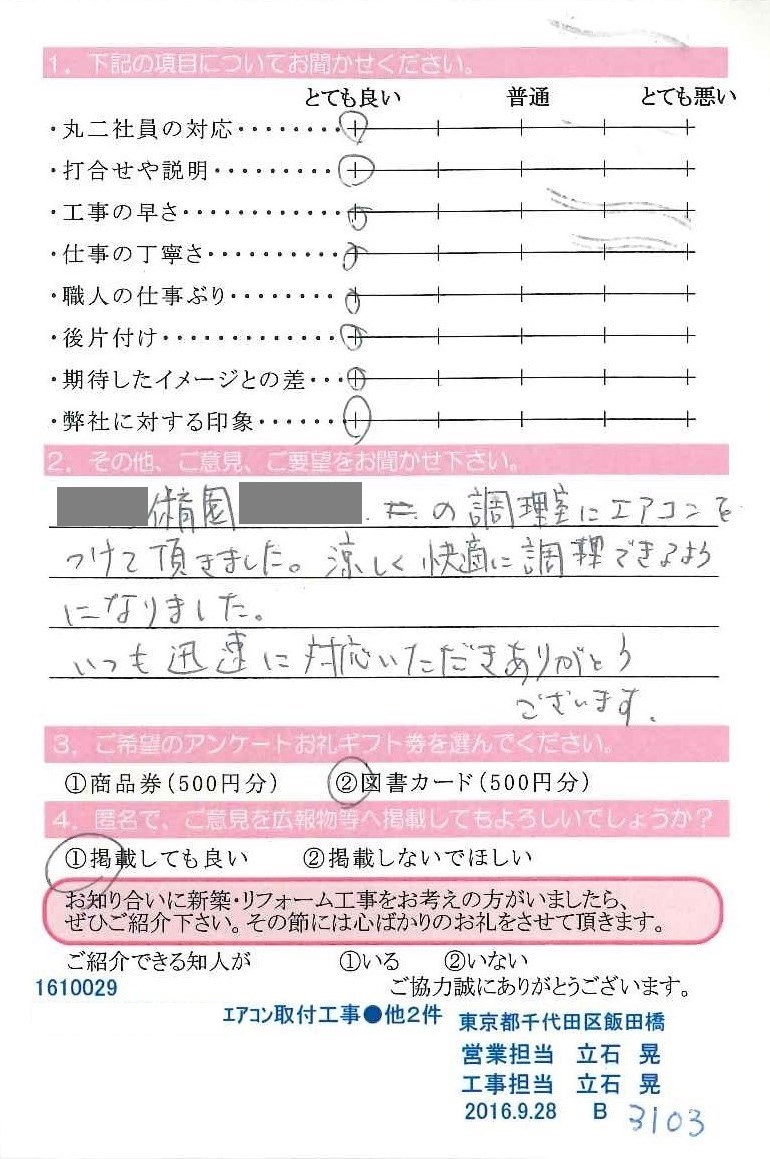 1. 下記の項目についてお聞かせください。
とても良い 普通 とても悪い
・丸二社員の対応・・・・・・・・
・打合せや説明・・・・・・・・・
・工事の早さ・・・・・・・・・・・・
・仕事の丁寧さ・・・・・・・・・・
・職人の仕事ぶり・・・・・・・・
・後片付け・・・・・・・・・・・・・
・期待したイメージとの差・・・
・弊社に対する印象・・・・・・・
2. その他、ご意見、ご要望をお聞かせ下さい。
保育園 の調理室にエアコンを
つけて頂きました。涼しく快適に調理できるよう
になりました。
いつも迅速に対応いただきありがとう
ございます。
3. ご希望のアンケートお礼ギフト券を選んでください。
①商品券(500円分) ②図書カード(500円分)
4. 匿名で、ご意見を広報物等へ掲載してもよろしいでしょうか?
①掲載しても良い ②掲載しないでほしい
お知り合いに新築・リフォーム工事をお考えの方がいましたら、
ぜひご紹介下さい。その節には心ばかりのお礼をさせて頂きます。
ご紹介できる知人が ①いる ②いない
1610029 ご協力誠にありがとうございます。
エアコン取付工事●他2件 東京都千代田区飯田橋
営業担当 立石 晃
工事担当 立石 晃
2016.9.28 B 3103